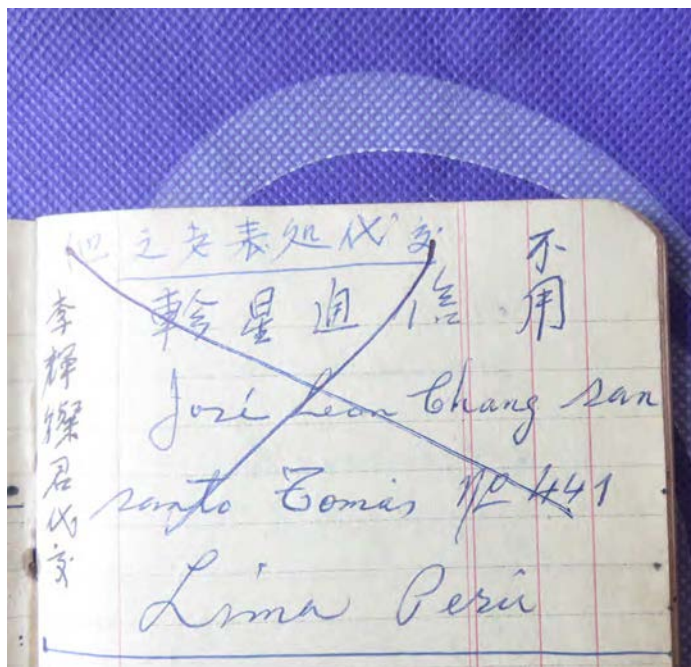 他之老表处代交
輪星通信
不用
José Leon Chang san
santo Tomás nº 441
Lima Perú
李輝燦君代交